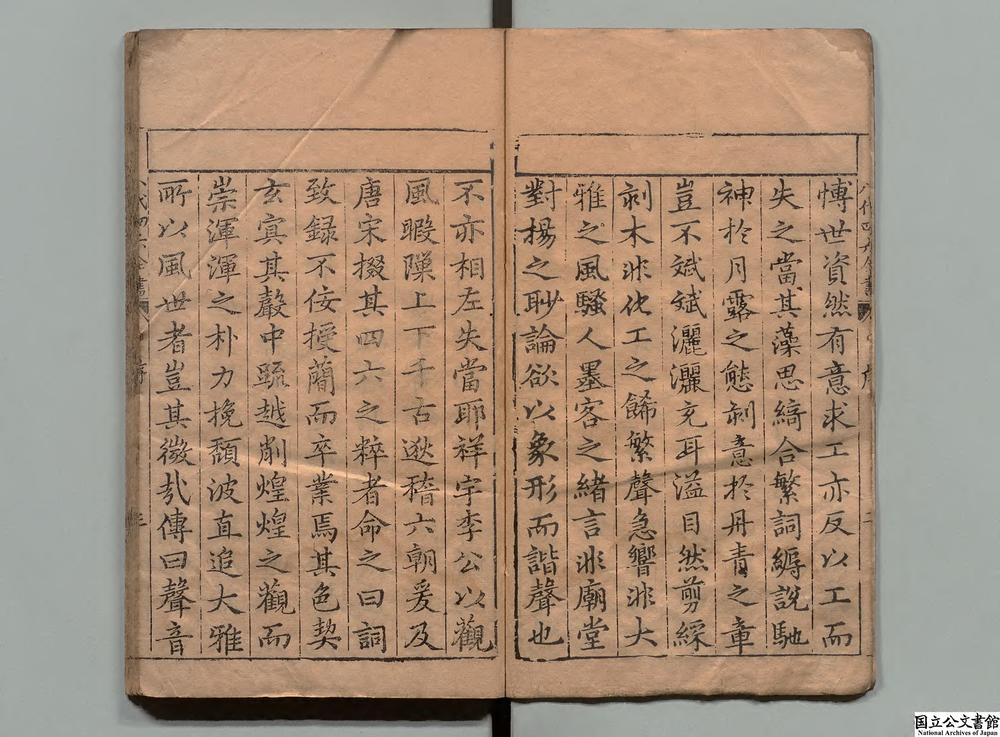 愽世資然有意求工亦反以工而
失之當其藻思綺合繁詞縟說馳
神於月露之態剡意於丹青之章
豈不斌斌灑灑充耳溢目然剪綵
剡木非化工之餙繁聲急響非大
雅之風騷人墨客之緒言非廟堂
對揚之眇論欲以象形而諧聲也
不亦相左失當耶祥宇李公以觀
風暇隟上下千古逖稽六朝爰及
唐宋掇其四六之粹者命之曰詞
致録不佞授簡而卒業焉其色契
玄寞其聲中䟽越削煌煌之觀而
崇渾渾之朴力挽頽波直追大雅
所以風世者豈其微㢤傳曰聲音
八代四六全書
序
八代四六全書
序
三
国立公文書館
National Archives of Japan